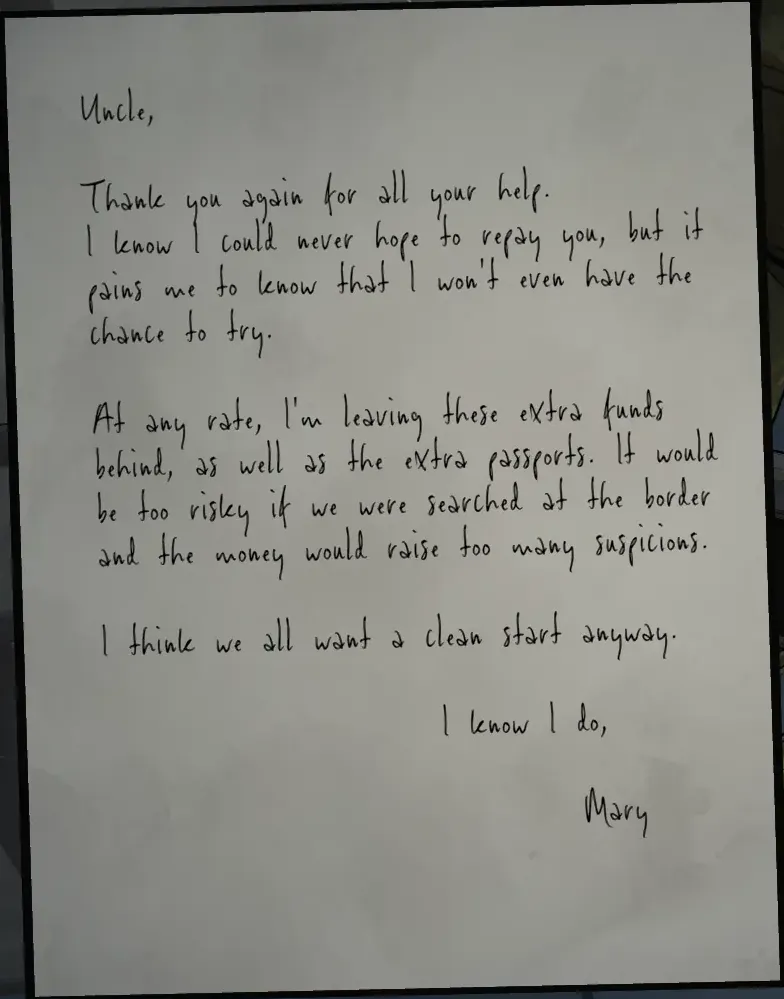 Uncle,
Thank you again for all your help.
I know I could never hope to repay you, but it
pains me to know that I won't even have the
chance to try.
At any rate, I'm leaving these extra funds
behind, as well as the extra passports. It would
be too risky if we were searched at the border
and the money would raise too many suspicions.
I think we all want a clean start anyway.
I know I do,
Mary